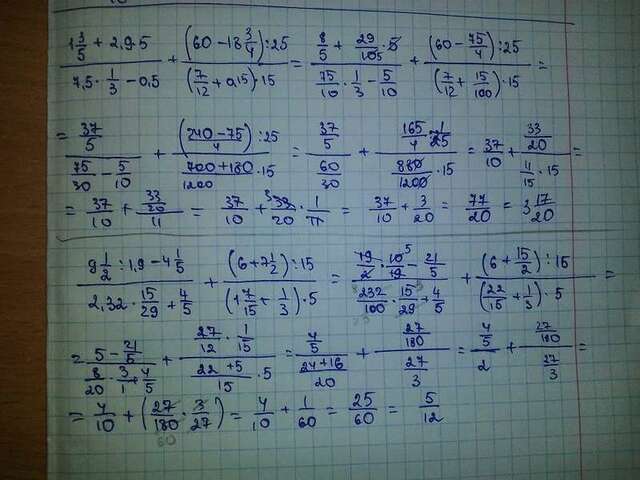 (1 3/5 + 2,9·5)/(7,5·1/3 − 0,5) + ((60 − 18 3/4):25)/((7/12 + 0,15)·15) = (8/5 + 29/105·5)/(75/10·1/3 − 5/10) + ((60 − 75/4):25)/((7/12 + 15/100)·15) =
= (37/5)/(75/30 − 5/10) + ((240−75)/4):25/((700+180)/1200·15) = (37/5)/(60/30) + (165/4·1/25)/(880/1200·15) = 37/10 + (33/20)/(11/15·15) =
= 37/10 + (33/20)/11 = 37/10 + 33/20·1/11 = 37/10 + 3/20 = 77/20 = 3 17/20
(9 1/2 : 1,9 − 4 1/5)/(2,32·15/29 + 4/5) + ((6 + 7 1/2):15)/((1 7/15 + 1/3)·5) = (19/2·10/19 − 21/5)/(232/100·15/29 + 4/5) + ((6 + 15/2):15)/((22/15 + 1/3)·5) =
= (5 − 21/5)/(8/20·3/1 + 4/5) + (27/12·1/15)/((22+5)/15·5) = (4/5)/((24+16)/20) + (27/180)/(27/3) = (4/5)/2 + (27/180)/(27/3) =
= 4/10 + (27/180·3/27) = 4/10 + 1/60 = 25/60 = 5/12